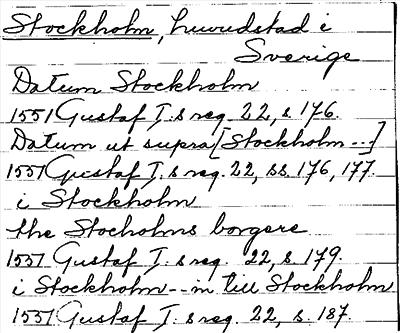 Stockholm, huvudstad i
Sverige
Datum Stockholm
1551 Gustaf I:s reg. 22, s. 176.
Datum ut supra [Stockholm --]
1551 Gustaf I:s reg. 22, ss. 176, 177.
i Stockholm
the Stocholms borgere
1551 Gustaf I:s reg. 22, s. 179.
i Stockholm -- in till Stockholm
1551 Gustaf I:s reg. 22, s. 187.